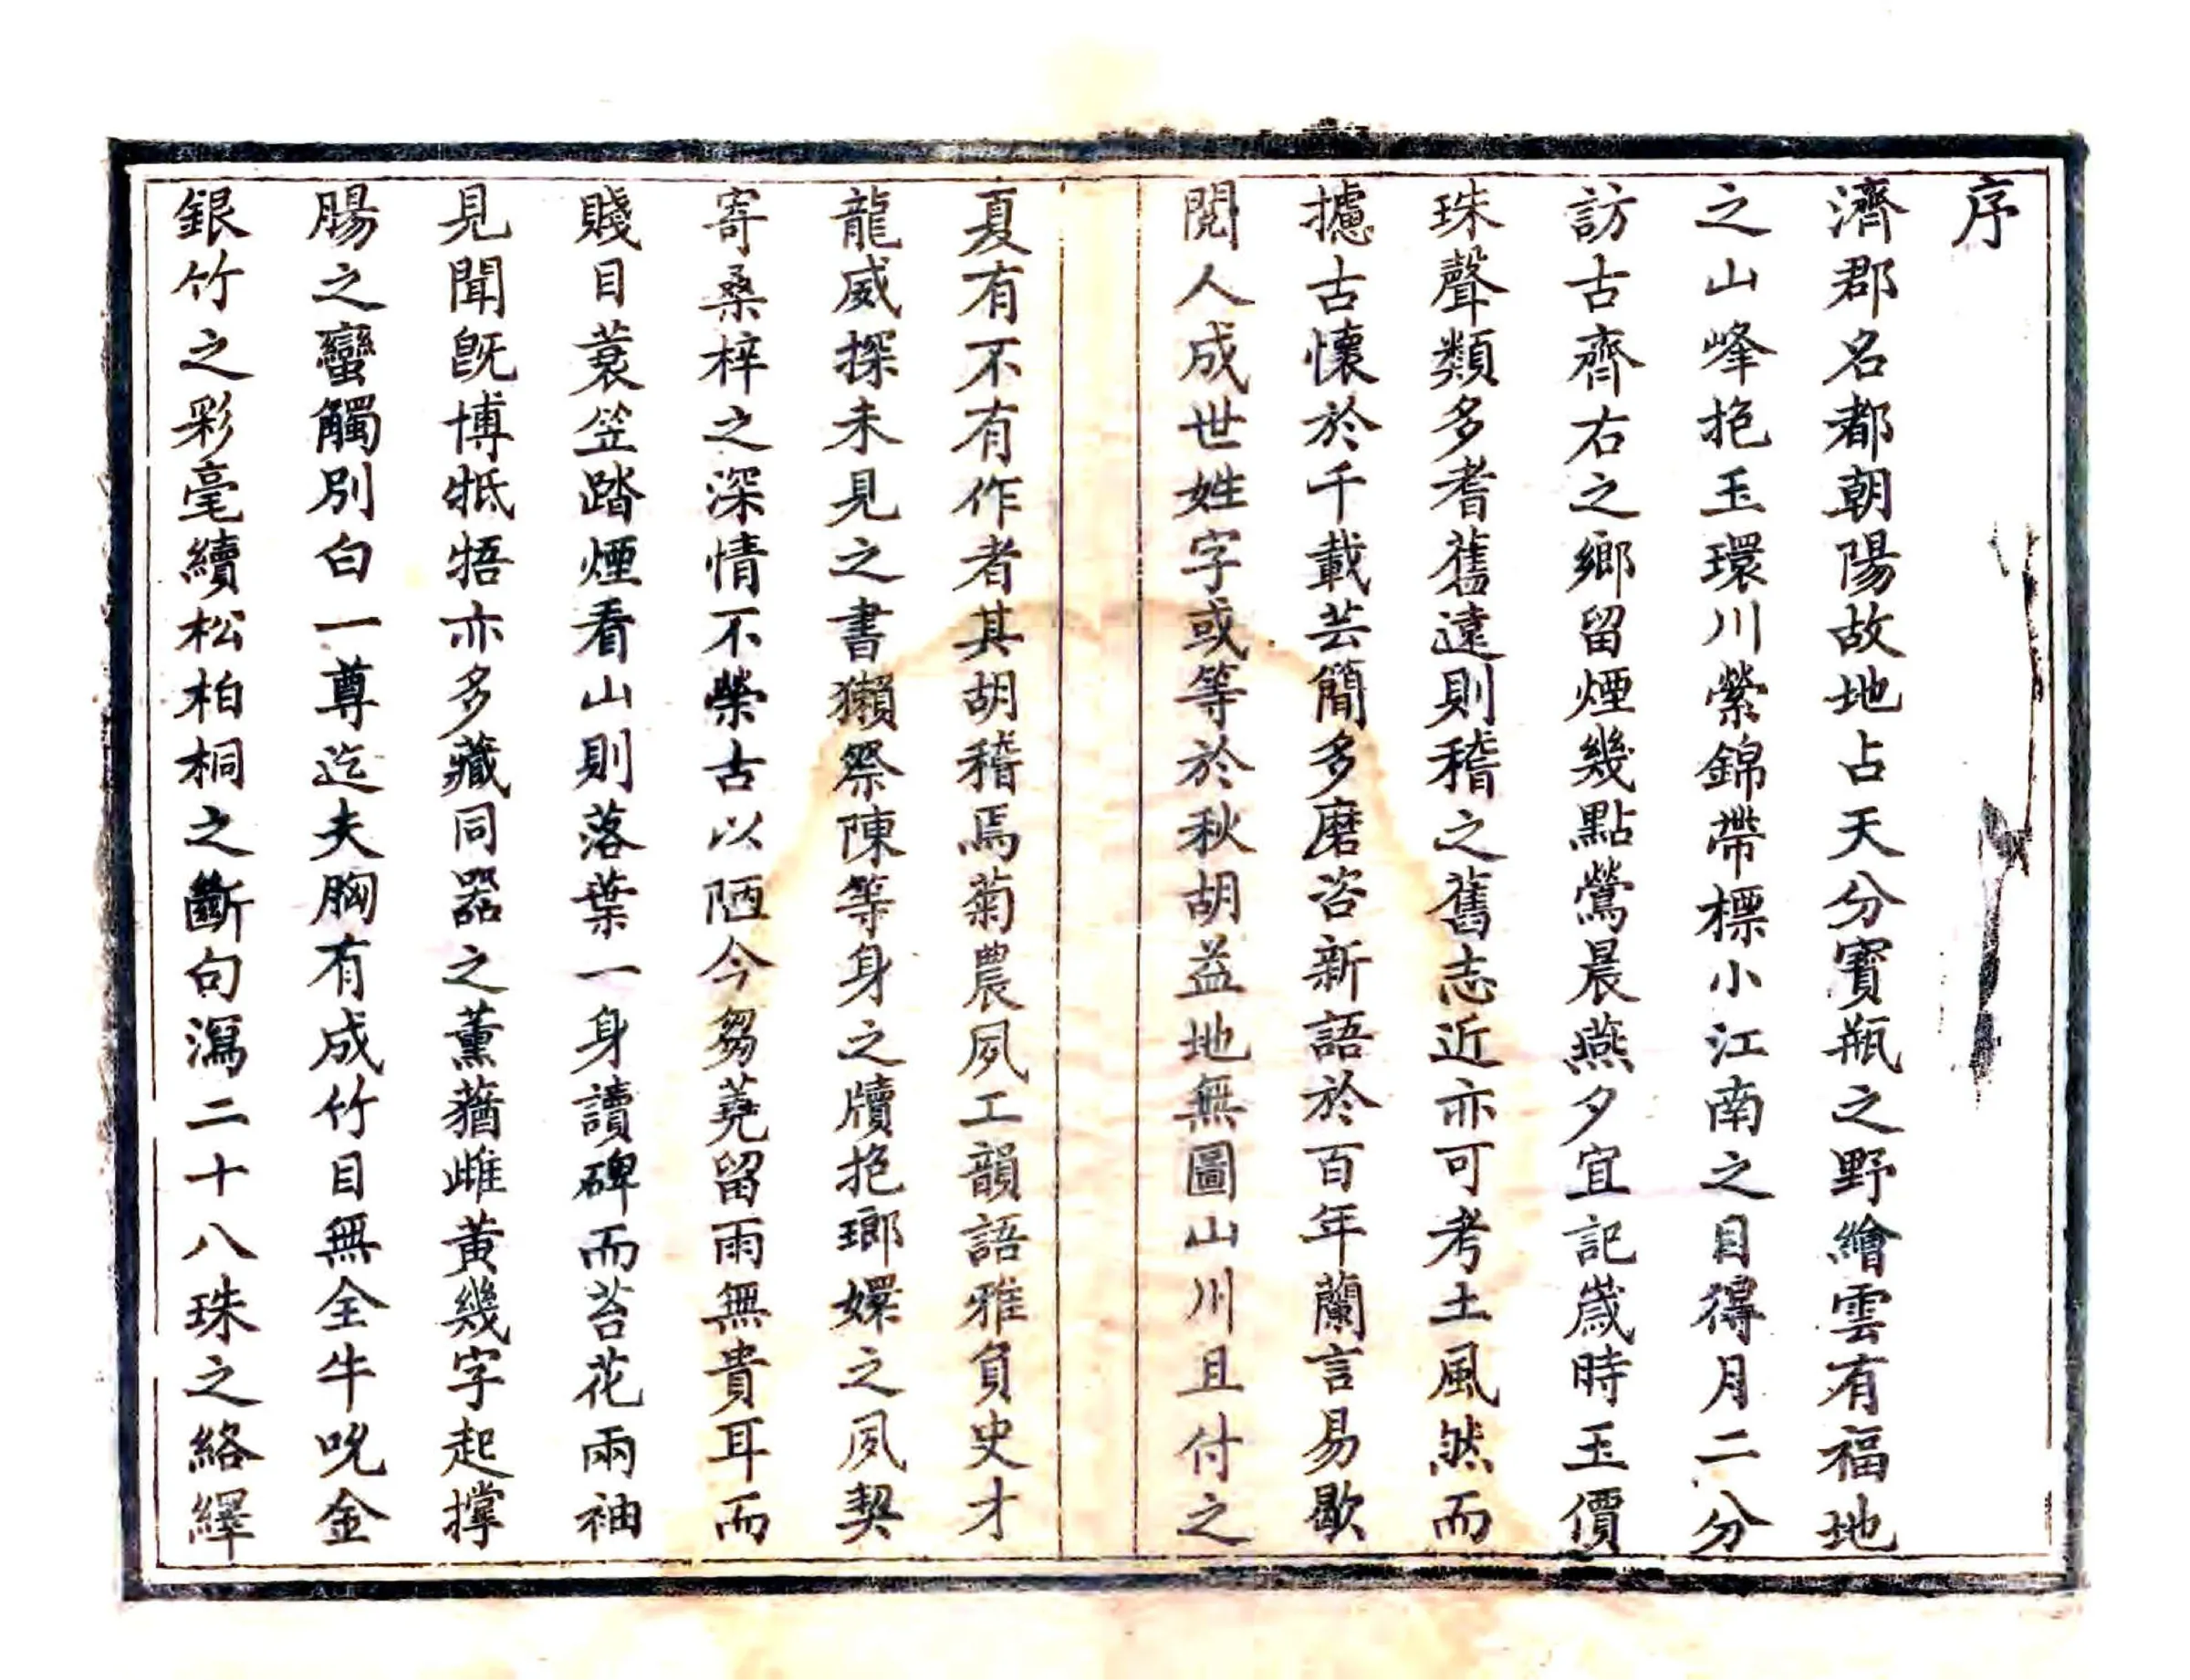 序
濟郡名都朝陽故地占天分寳瓶之野繪雲有福地
之山峰抱玉環川縈錦帶標小江南之目得月二分
訪古齊右之鄉留煙幾點鶯晨燕夕宜記歲時玉價
珠聲類多耆舊遠則稽之舊志近亦可考土風然而
攄古懷於千載芸簡多磨咨新語於百年蘭言易歇
閱人成世姓字或等於秋胡益地無圖山川且付之
夏有不有作者其胡稽焉菊農夙工韻語雅負史才
龍威探未見之書獺祭陳等身之牘抱瑯嬛之夙契
寄桑梓之深情不榮古以陋今芻蕘留雨無貴耳而
賤目蓑笠踏煙看山則落葉一身讀碑而苔花兩袖
見聞旣博牴牾亦多藏同器之薰蕕雌黃幾字起撑
腸之蠻觸別白一尊迄夫胸有成竹目無全牛吮金
銀竹之彩毫續松柏桐之斷句瀉二十八珠之絡繹